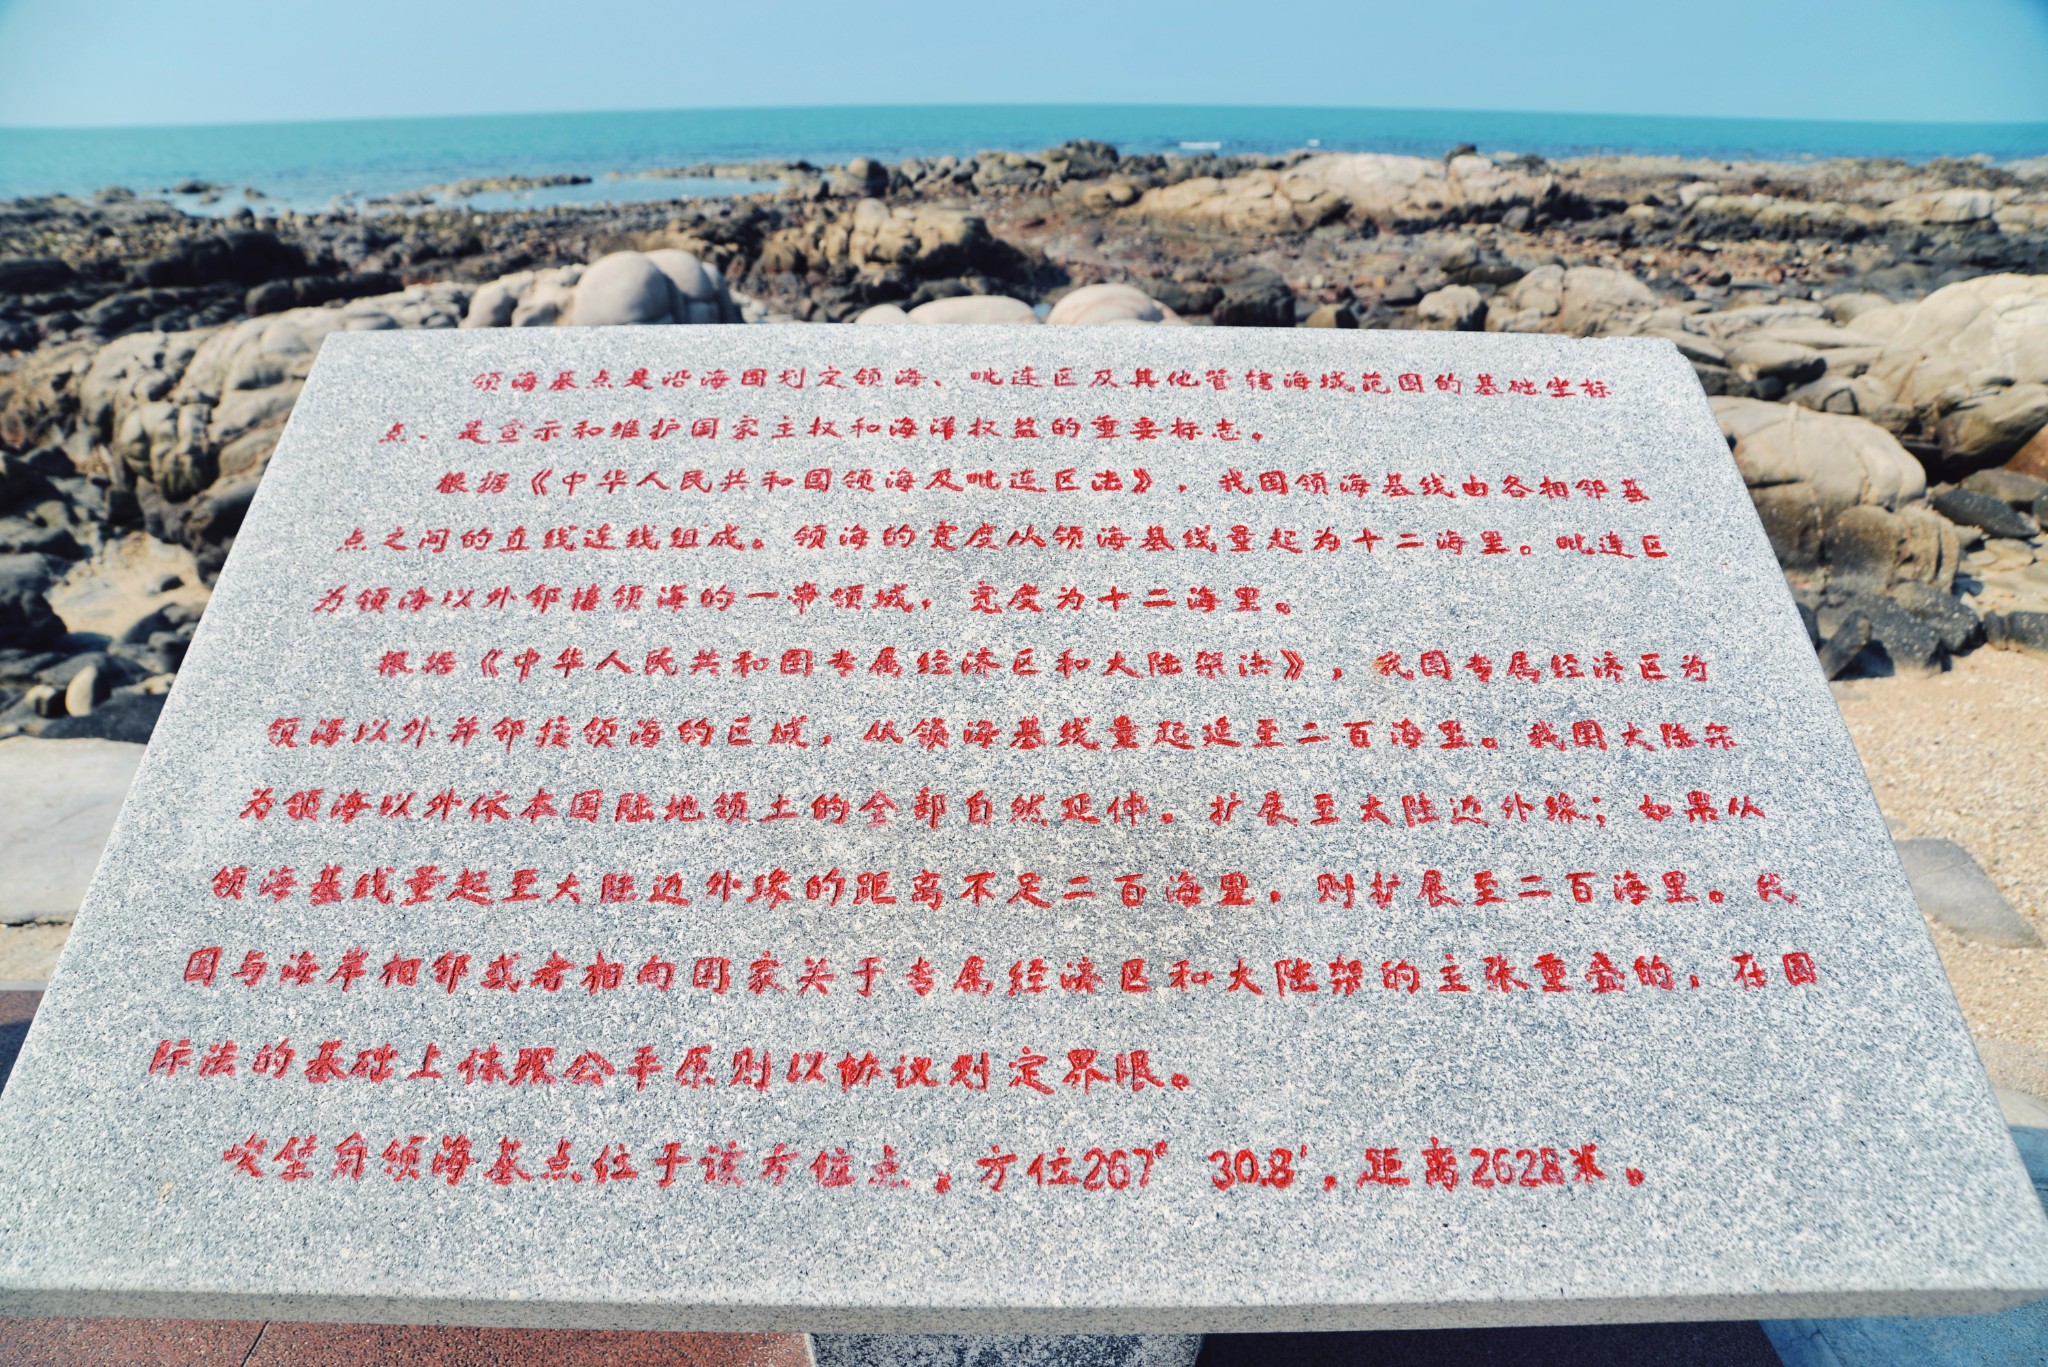 领海基点是沿海国划定领海、毗连区及其他管辖海域范围的基础坐标
点、是宣示和维护国家主权和海洋权益的重要标志。
根据《中华人民共和国领海及毗连区法》，我国领海基线由各相邻基
点之间的直线连线组成。领海的宽度从领海基线量起为十二海里。毗连区
为领海以外邻接领海的一带领域，宽度为十二海里。
根据《中华人民共和国专属经济区和大陆架法》，我国专属经济区为
领海以外并邻接领海的区域，从领海基线量起延至二百海里。我国大陆架
为领海以外依本国陆地领土的全部自然延伸。扩展至大陆边外缘；如果从
领海基线量起至大陆边外缘的距离不足二百海里，则扩展至二百海里。我
国与海岸相邻或者相向国家关于专属经济区和大陆架的主张重叠的，在国
际法的基础上按照公平原则以协议划定界限。
峻壁角领海基点位于该方位点，方位267° 30.8′，距离2628米。